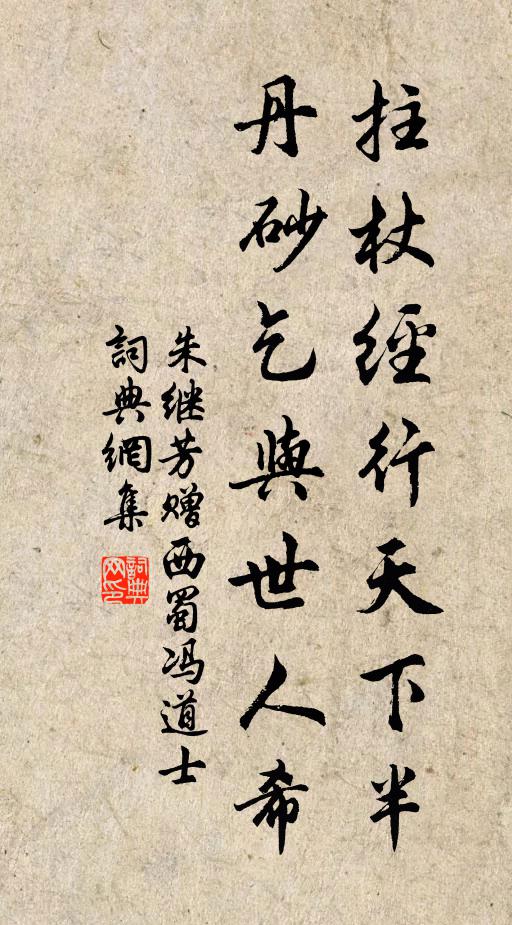 拄杖經行天下半
丹砂乞與世人希
朱继芳赠西蜀冯道士
詞典網集
詞典网印